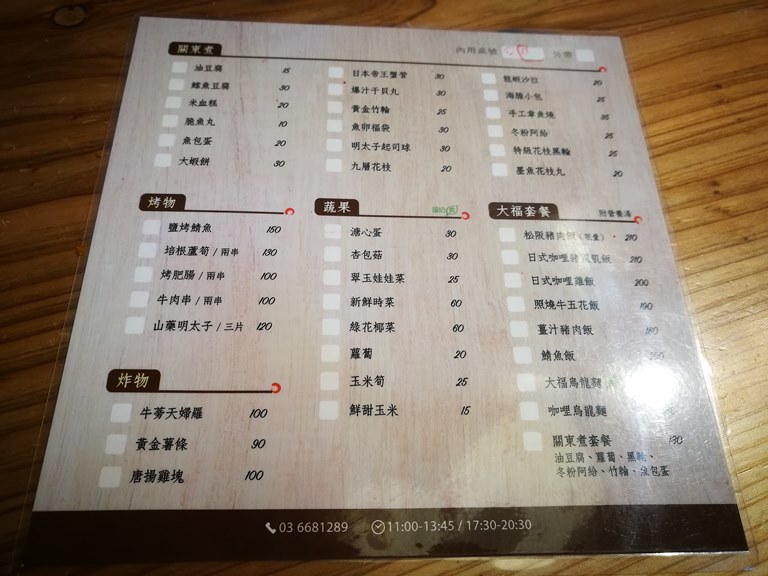 關東煮
內用桌號 外帶
油豆腐 15
鱈魚豆腐 30
米血糕 20
脆魚丸 10
魚包蛋 20
大蝦餅 30
日本帝王蟹管 30
爆汁干貝丸 30
黃金竹輪 25
魚卵福袋 30
明太子起司球 30
九層花枝 20
龍蝦沙拉 20
海膽小包 25
手工章魚燒 35
冬粉阿給 25
特級花枝黑輪 25
墨魚花枝丸 20
烤物
鹽烤鯖魚 150
培根蘆筍 / 兩串 130
烤肥腸 / 兩串 100
牛肉串 / 兩串 100
山藥明太子 / 三片 120
炸物
牛蒡天婦羅 100
黃金薯條 90
唐揚雞塊 100
蔬果
溏心蛋 30
杏包菇 30
翠玉娃娃菜 25
新鮮時菜 60
綠花椰菜 60
蘿蔔 20
玉米筍 25
鮮甜玉米 15
大福套餐 附營養湯
松阪豬肉飯(限量) 210
日式咖哩豬 飯 210
日式咖哩雞飯 200
照燒牛五花飯 190
薑汁豬肉飯 180
鯖魚飯
大福烏龍麵
咖哩烏龍麵
關東煮套餐 130
油豆腐、蘿蔔、黑輪、
冬粉阿給、竹輪、魚包蛋
03 6681289 11:00-13:45 / 17:30-20:30